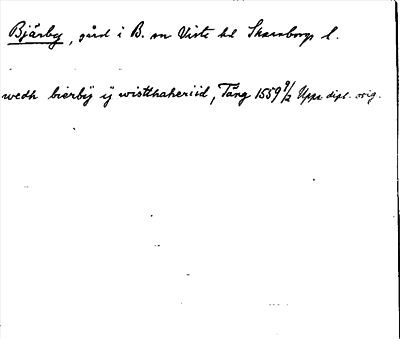 Bjärby, gård i B. sn Viste hd Skaraborgs l.
wedh bierbÿ ÿ wistthaheriid, Täng 1559 9/2 Upps dipl. orig.